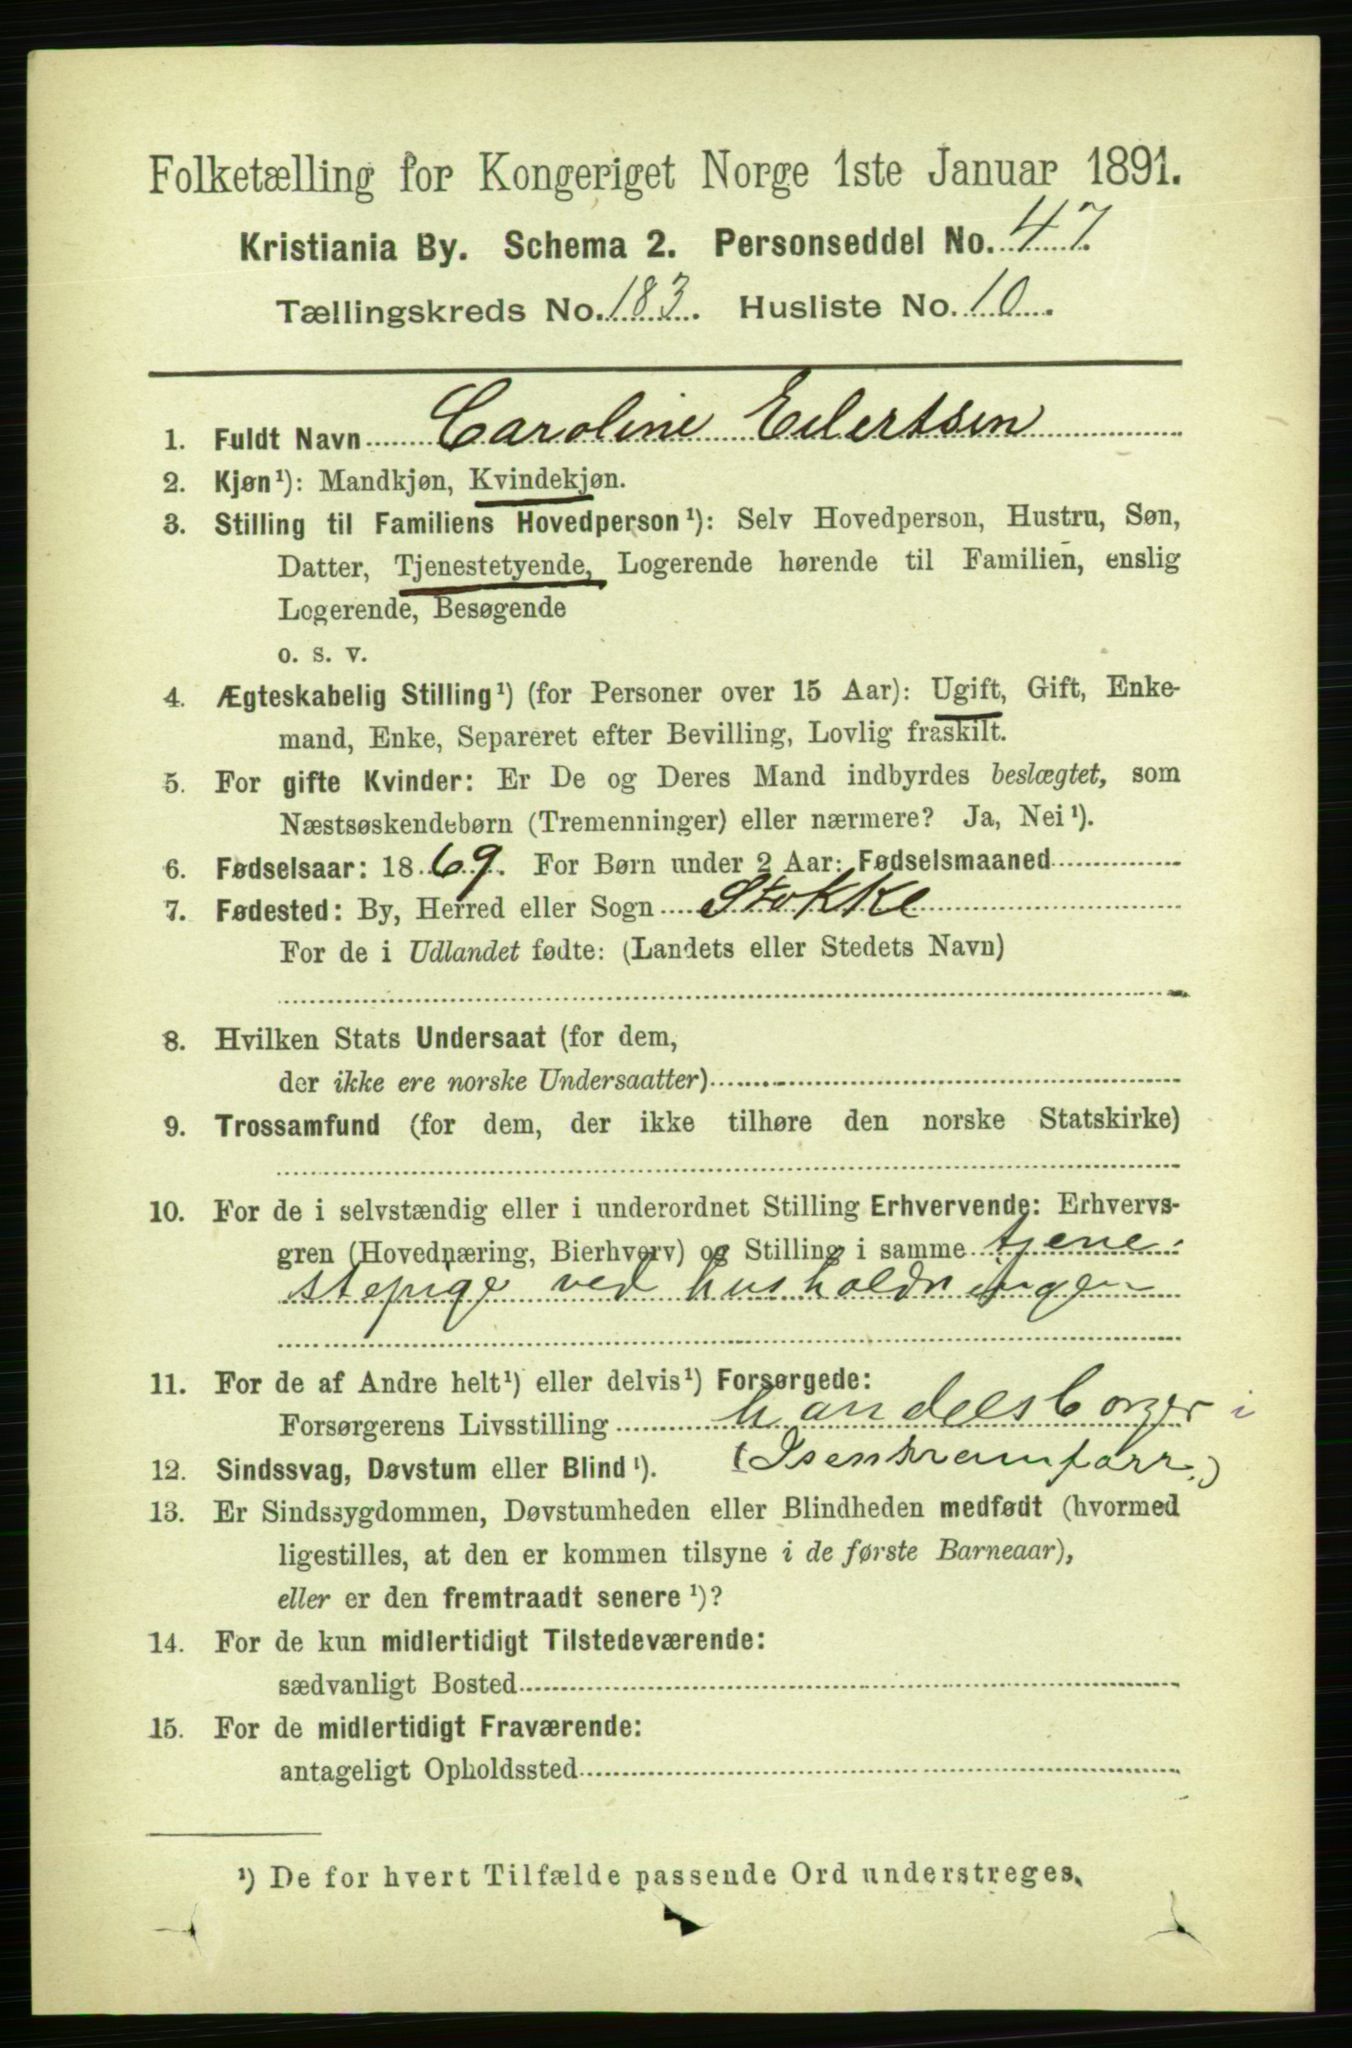 Folketælling for Kongeriget Norge 1ste Januar 1891.
Kristiania By. Schema 2. Personseddel No. 47.
Tællingskreds No. 183. Husliste No. 10.
1. Fuldt Navn Caroline Eilertsen
2. Kjøn¹): Mandkjøn, Kvindekjøn.
3. Stilling til Familiens Hovedperson¹): Selv Hovedperson, Hustru, Søn,
Datter, Tjenestetyende, Logerende hørende til Familien, enslig
Logerende, Besøgende
o. s. v.
4. Ægteskabelig Stilling¹) (for Personer over 15 Aar): Ugift, Gift, Enke-
mand, Enke, Separeret efter Bevilling, Lovlig fraskilt.
5. For gifte Kvinder: Er De og Deres Mand indbyrdes beslægtet, som
Næstsøskendebørn (Tremenninger) eller nærmere? Ja, Nei¹).
6. Fødselsaar: 1869. For Børn under 2 Aar: Fødselsmaaned
7. Fødested: By, Herred eller Sogn Stokke
For de i Udlandet fødte: (Landets eller Stedets Navn)
8. Hvilken Stats Undersaat (for dem,
der ikke ere norske Undersaatter)
9. Trossamfund (for dem, der ikke tilhøre den norske Statskirke)
10. For de i selvstændig eller i underordnet Stilling Erhvervende: Erhvervs-
gren (Hovednæring, Bierhverv) og Stilling i samme tjene-
stepige ved husholdningen
11. For de af Andre helt¹) eller delvis¹) Forsørgede:
Forsørgerens Livsstilling handelsborger i
12. Sindssvag, Døvstum eller Blind¹). (Isenkramforr.)
13. Er Sindssygdommen, Døvstumheden eller Blindheden medfødt (hvormed
ligestilles, at den er kommen tilsyne i de første Barneaar),
eller er den fremtraadt senere¹)?
14. For de kun midlertidigt Tilstedeværende:
sædvanligt Bosted
15. For de midlertidigt Fraværende:
antageligt Opholdssted
¹) De for hvert Tilfælde passende Ord understreges.